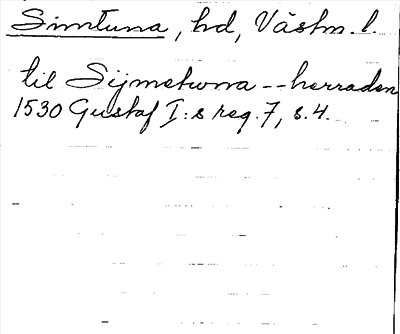 Simtuna, hd, Västm. l.
til Sijmetwna -- herraden
1530 Gustaf I:s reg. 7, s. 4.